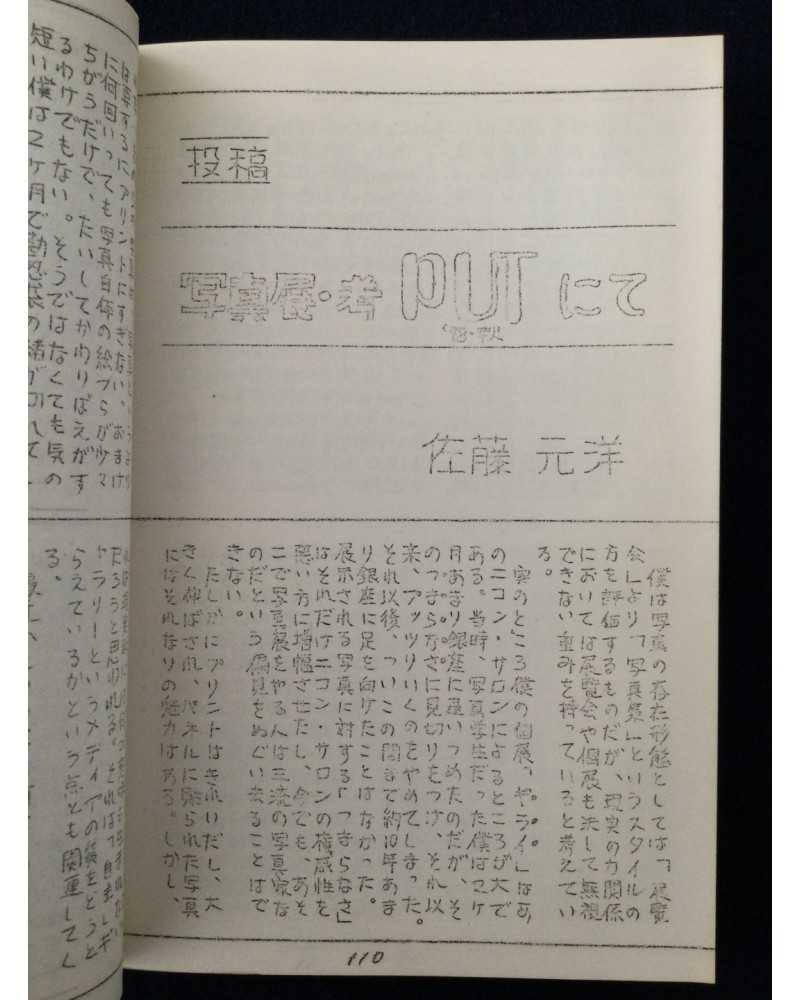 投稿
写真展・考 PUT にて
'78・秋
佐藤 元洋
僕は写真の存在形態としては「展覧
会」より「写真集」というスタイルの
方を評価するものだが、現実の力関係
においては展覧会や個展も決して無視
できない重みを持っていると考えてい
る。
実のところ僕の個展
のニコン・サロンによるところが大で
ある。当時、写真学生だった僕は2ヶ
月あまり銀座に通いつめたのだが、そ
のつまらなさに見切りをつけ、それ以
来、プッツリいくのをやめてしまった。
それ以後、ついこの間まで約10年あま
り銀座に足を向けたことはなかった。
展示される写真に対する「つまらなさ」
はそれだけニコン・サロンの権威性を
悪い方に増幅させたし、今でも、あそ
こで写真展をやる人は三流の写真家な
のだという偏見をぬぐい去ることはで
きない。
たしかにプリントはきれいだし、大
きく伸ばされ、パネルに貼られた写真
にはそれなりの魅力はある。しかし、
110
に何回いっても写真自体の絵づらが少々
ちがうだけで、たいしてかわりばえがす
るわけでもない。そうではなくても気の
短い僕は2ヶ月で勘忍袋の緒が切れて
だろうと思われる。それは「自主ギ
ャラリーというメディアの質をどうと
らえているかという点とも関連してく
る。